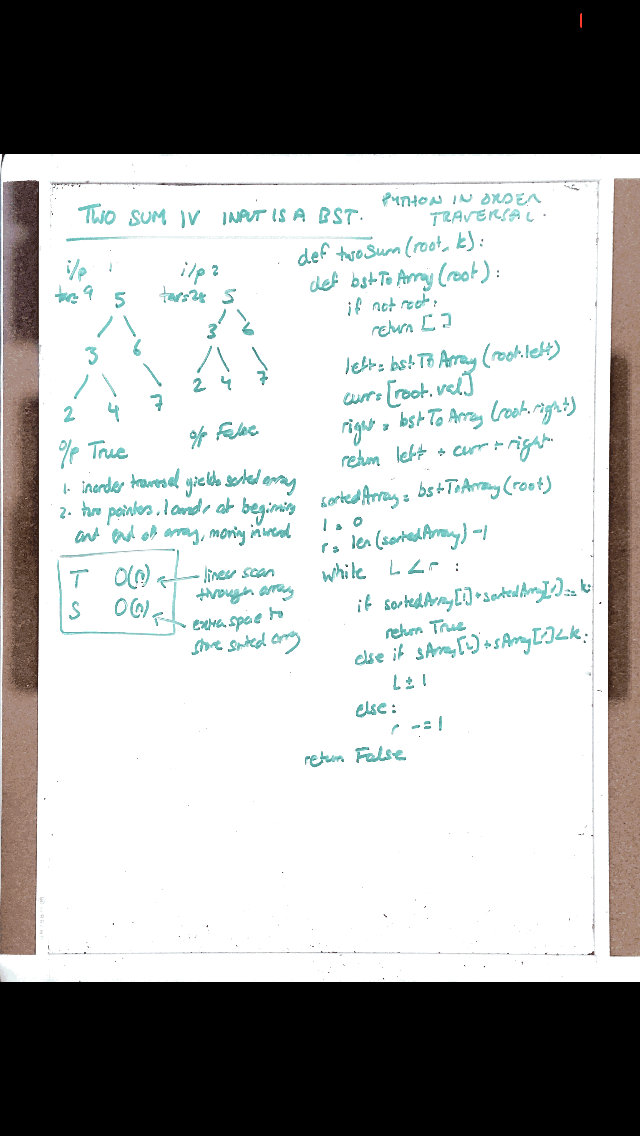 TWO SUM IV INPUT IS A BST.
PYTHON IN ORDER
TRAVERSAL.
i/p 1
tar=9
5
3 6
2 4 7
o/p True
i/p 2
tar=28
5
3 6
2 4 7
o/p False
1. inorder traversal yields sorted array
2. two pointers, l and r at beginning
and end of array, moving inward
T O(n) ← linear scan
through array
S O(n) ← extra space to
store sorted array
def twoSum(root, k):
def bstToArray(root):
if not root:
return []
left = bstToArray(root.left)
curr = [root.val]
right = bstToArray(root.right)
return left + curr + right
sortedArray = bstToArray(root)
l = 0
r = len(sortedArray) -1
while L < r :
if sortedArray[l] + sortedArray[r] == k:
return True
else if sArray[L] + sArray[r] < k:
L ± 1
else:
r -= 1
return False